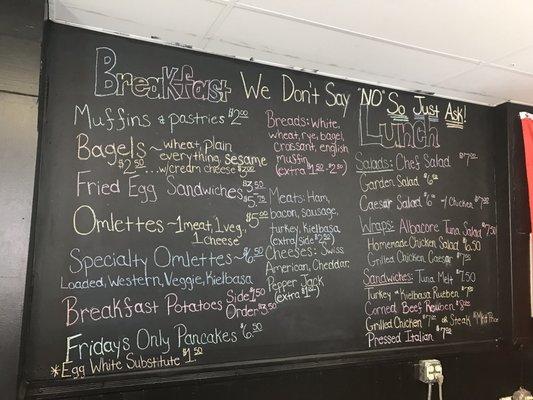 Breakfast We Don't Say "NO" So Just Ask!
Muffins & pastries $2.00
Bagels ~ wheat, plain
everything, sesame
$2.50 ... w/cream cheese $3.00
Fried Egg Sandwiches $3.50
$5.75
Omlettes ~ 1 meat, 1 veg, $5.00
1 cheese
Specialty Omlettes ~ $6.50
Loaded, Western, Veggie, Kielbasa
Breakfast Potatoes Side $1.50
Order $3.50
Fridays Only Pancakes $6.50
*Egg White Substitute $1.50
Breads: White,
wheat, rye, bagel,
croissant, english
muffin
(extra $1.50 - 2.50)
Meats: Ham,
bacon, sausage,
turkey, Kielbasa
(extra/side $2.50)
Cheeses: Swiss
American, Cheddar,
Pepper Jack
(extra $1.00)
Lunch
Salads: Chef Salad $7.00
Garden Salad $6.00
Caesar Salad $6.00 w/ Chicken $7.00
Wraps: Albacore Tuna Salad $7.50
Homemade Chicken Salad $6.50
Grilled Chicken Caesar $7.00
Sandwiches: Tuna Melt $7.50
Turkey or Kielbasa Rueben
Corned Beef Rueben
Grilled Chicken or Steak
Pressed Italian